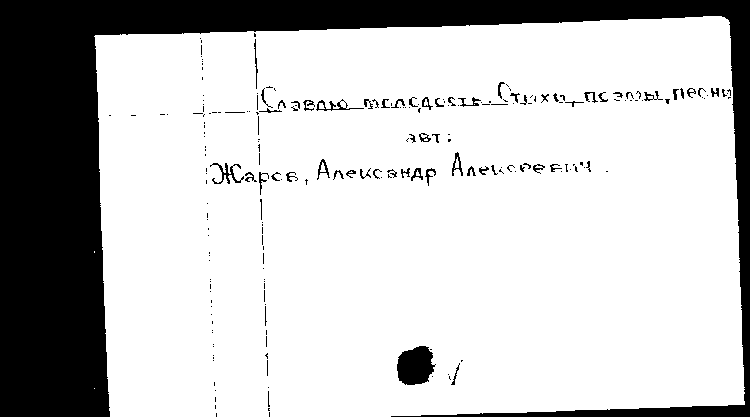 Славлю молодость. Стихи, поэмы, песни
авт:
Жаров, Александр Алексеевич.